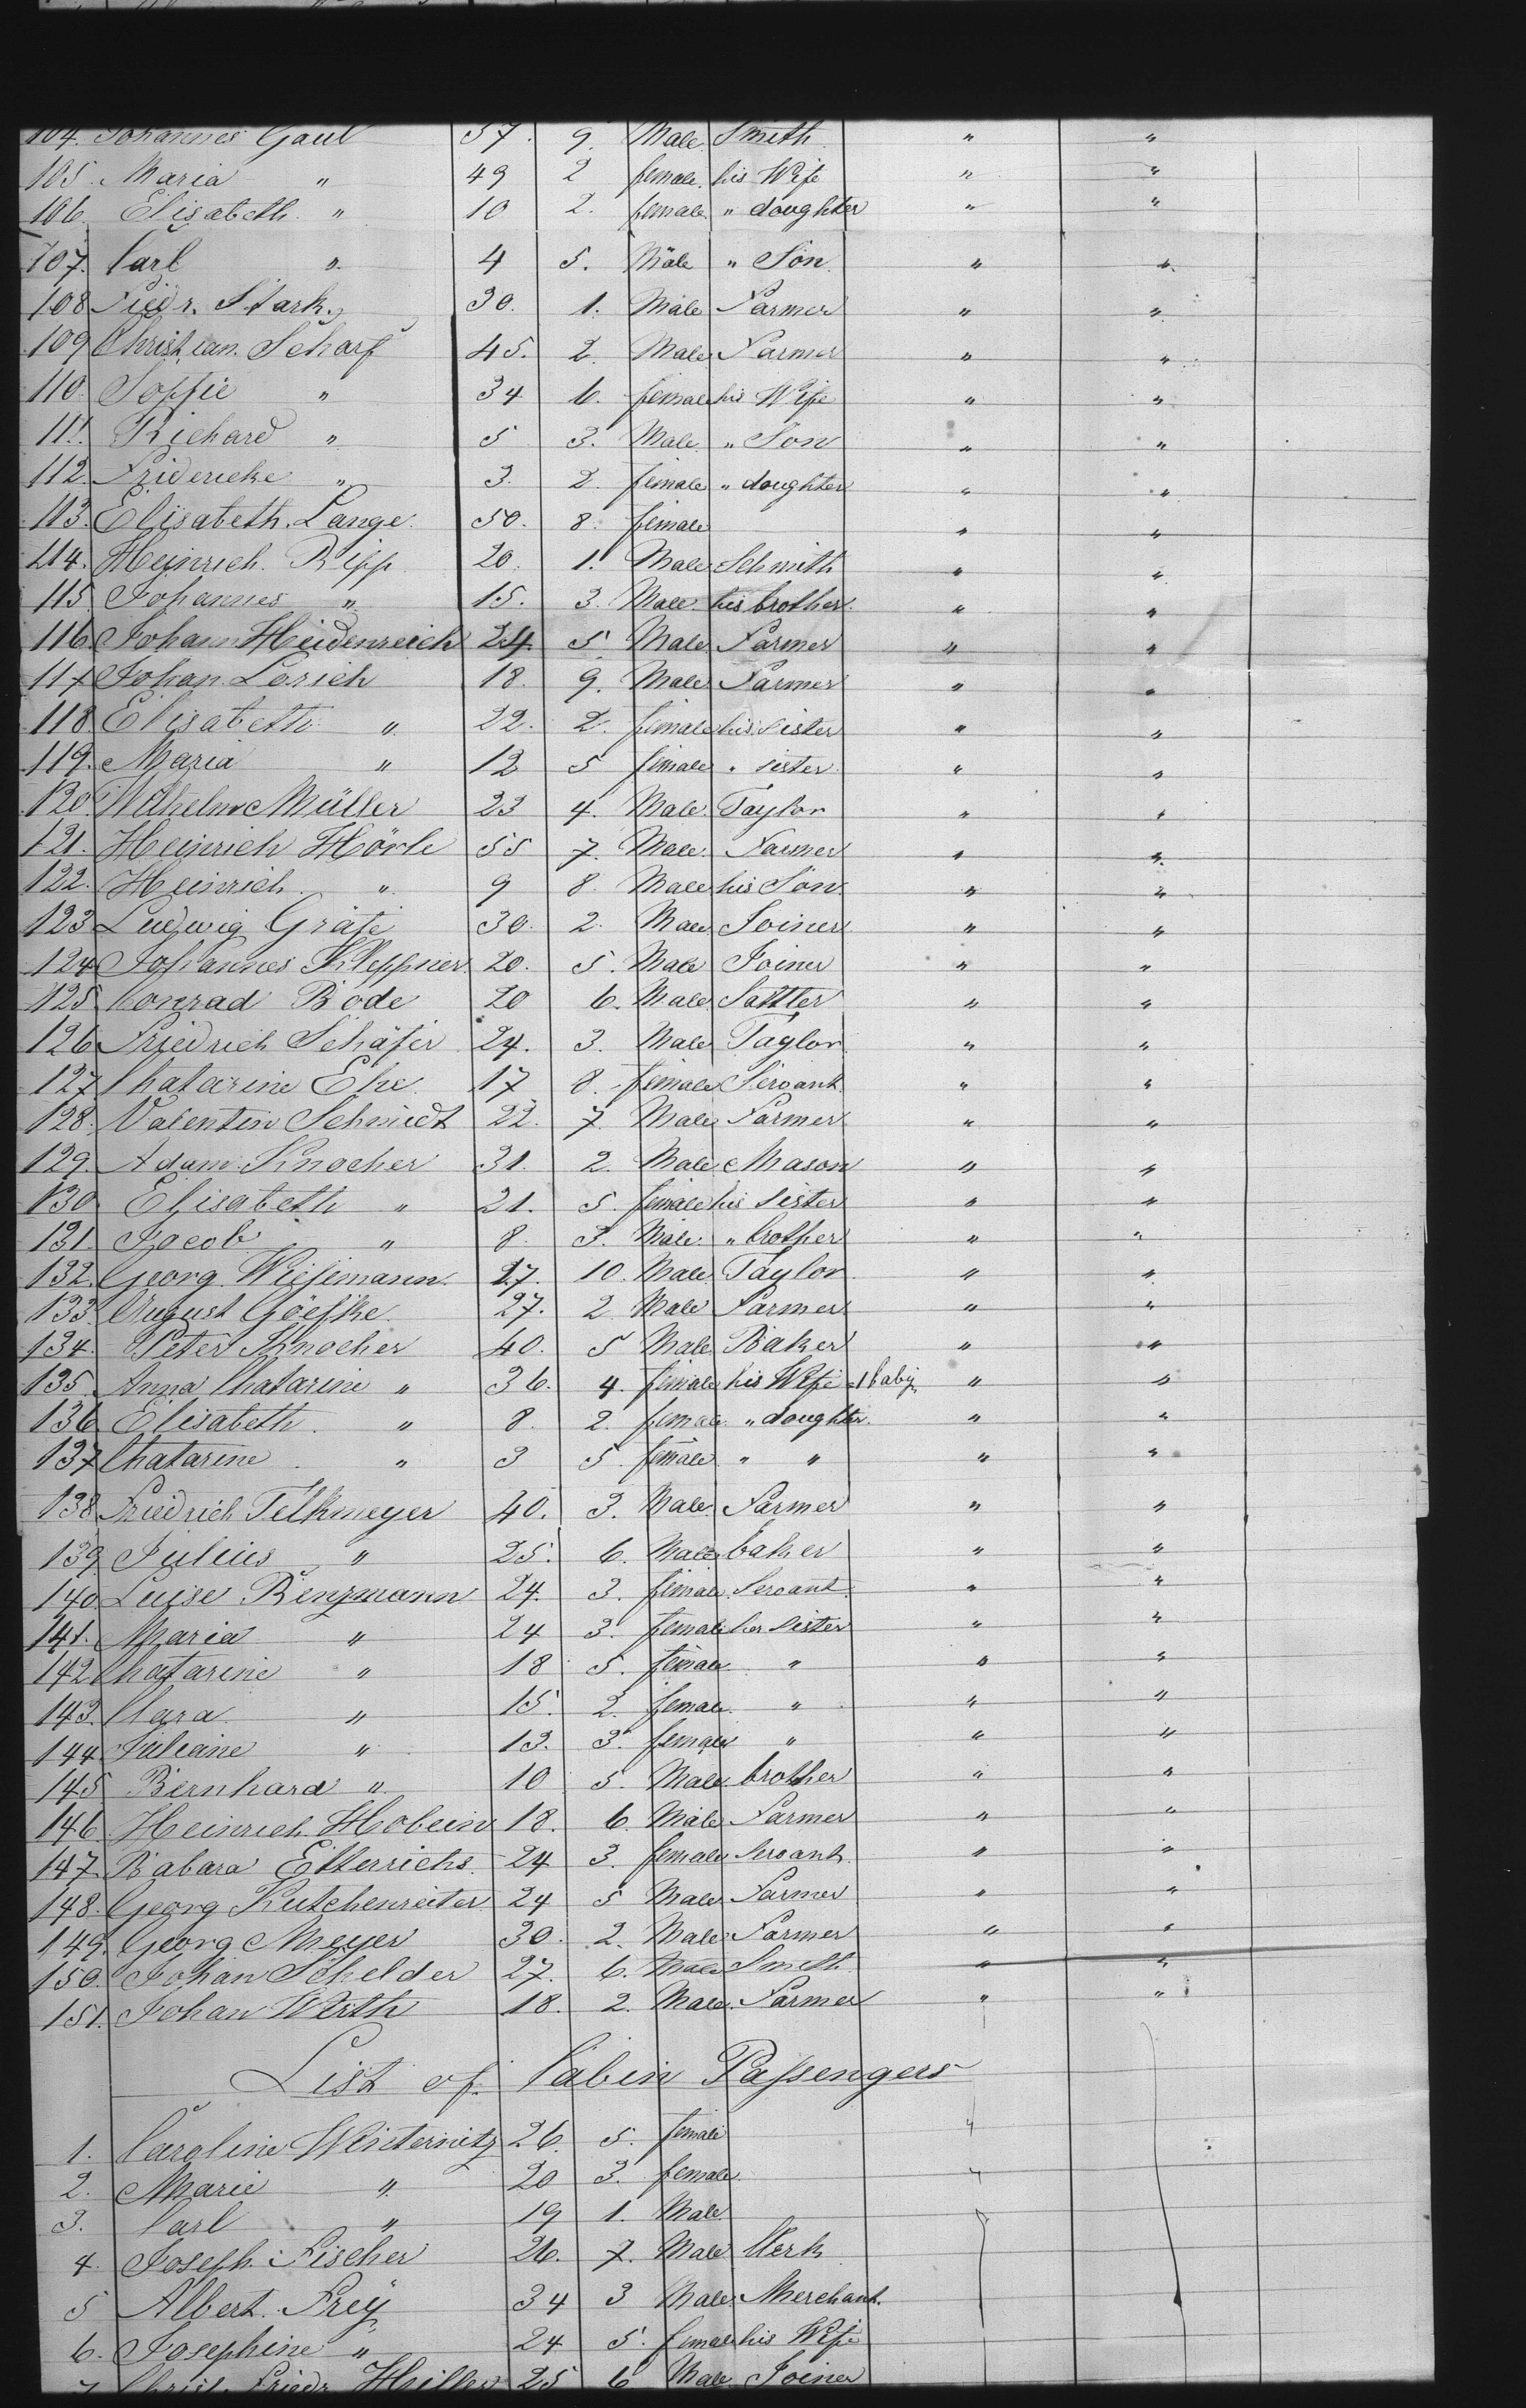 104. Johannes Gaul 57. 9. Male Smith " "
105. Maria " 49 2 female his Wife " "
106. Elisabeth " 10 2. female " doughter " "
107. Carl " 4 5. Male " Son " "
108 Friedr. Stark. 30. 1. Male Farmer " "
109 Christian Scharf 45. 2. Male Farmer " "
110. Soffie " 34 6. female his Wife " "
111. Richard " 5 3. Male " Son " "
112. Fridericke " 3. 2. female " doughter " "
113. Elisabeth Lange. 50. 8. female " "
114. Heinrich Ripp 20. 1. Male Schmith " "
115 Johannes " 15. 3. Male his brother " "
116 Johann Heidenreich 24. 5 Male Farmer " "
117 Johan Lorich 18. 9. Male Farmer " "
118 Elisabeth " 22. 2. female his Sister " "
119. Maria " 12 5 female " sister " "
120. Wilhelm Müller 23 4. Male Taylor " "
121. Heinrich Hörle 55 7. Male Farmer " "
122. Heinrich " 9 8. Male his Son " "
123 Ludwig Gräfe 30. 2. Male Joiner " "
124 Johannes Kleppner 20. 5. Male Joiner " "
125 Conrad Bode 20 6. Male Sattler " "
126 Friedrich Schäfer 24. 3. Male Taylor " "
127 Chatarine Ehe 17 8. female Servant " "
128. Valentin Schmidt 22. 7. Male Farmer " "
129. Adam Knocher 31. 2. Male Mason " "
130 Elisabeth " 21. 5. female his Sister " "
131. Jacob " 8. 3. Male " brother " "
132. Georg Wiesemann 27. 10. Male Taylor " "
133. August 27. 2 Male Farmer " "
134. Peter Knocher 40. 5 Male Baker " "
135. Anna Chatarine " 36. 4. female his Wife 1 baby " "
136 Elisabeth " 8. 2. female " doughter. " "
137 Chatarine " 3 5. female " " " "
138 Friedrich Telkmeyer 40. 3. Male Farmer " "
139. Julius " 25. 6. Male baker " "
140. Luise Benzmann 24. 3. female Servant " "
141. Maria " 24 3. female her Sister " "
142 Chatarine " 18 5. female " " "
143. Clara " 15. 2. female " " "
144 Juliane " 13. 3. female " " "
145 Bernhard " 10 5. Male brother " "
146 Heinrich Hobein 18. 6. Male Farmer " "
147 Babara Etterichs 24 3. female Servant " "
148. Georg Kutchenreiter 24 5 Male Farmer " "
149. Georg Meyer 30. 2. Male Farmer " "
150. Johan Schelder 27. 6. Male Smith " "
151. Johan Wirth 18. 2. Male Farmer " "
List of Cabin Passengers
1. Caroline Winternitz 26. 5. female "
2. Marie " 20 3. female "
3. Carl " 19 1. Male
4. Joseph Fischer 26. 7. Male Clerk
5 Albert Frey 34 3 Male Merchant.
6. Josephine " 24 5. female his Wife
7 Christ. Friedr. Hiller 25 6 Male Joiner